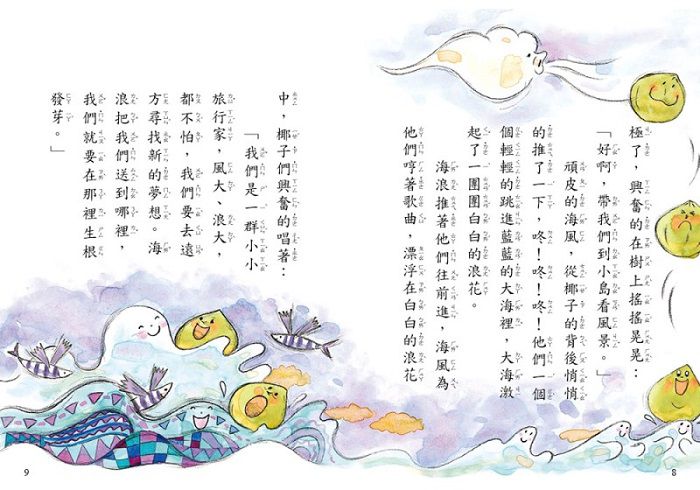 極了，興奮的在樹上搖搖晃晃：
「好啊，帶我們到小島看風景。」
頑皮的海風，從椰子的背後悄悄
的推了一下，咚！咚！咚！他們一個
個輕輕的跳進藍藍的大海裡，大海激
起了一團團白白的浪花。
海浪推著他們往前進，海風為
他們哼著歌曲，漂浮在白白的浪花
8
中，椰子們興奮的唱著：
「我們是一群小小
旅行家，風大、浪大，
都不怕，我們要去遠
方尋找新的夢想。海
浪把我們送到哪裡，
我們就要在那裡生根
發芽。」
9